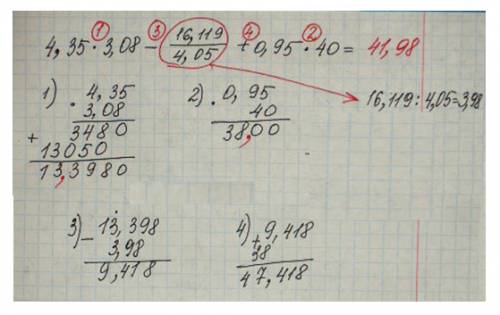 1 3 4 2
4,35 · 3,08 − 16,119/4,05 + 0,95 · 40 = 41,98
16,119 : 4,05 = 3,98
1) 4,35
· 3,08
3480
+ 13050
13,3980
2) 0,95
· 40
38,00
3) − 13,398
3,98
9,418
4) + 9,418
38
47,418